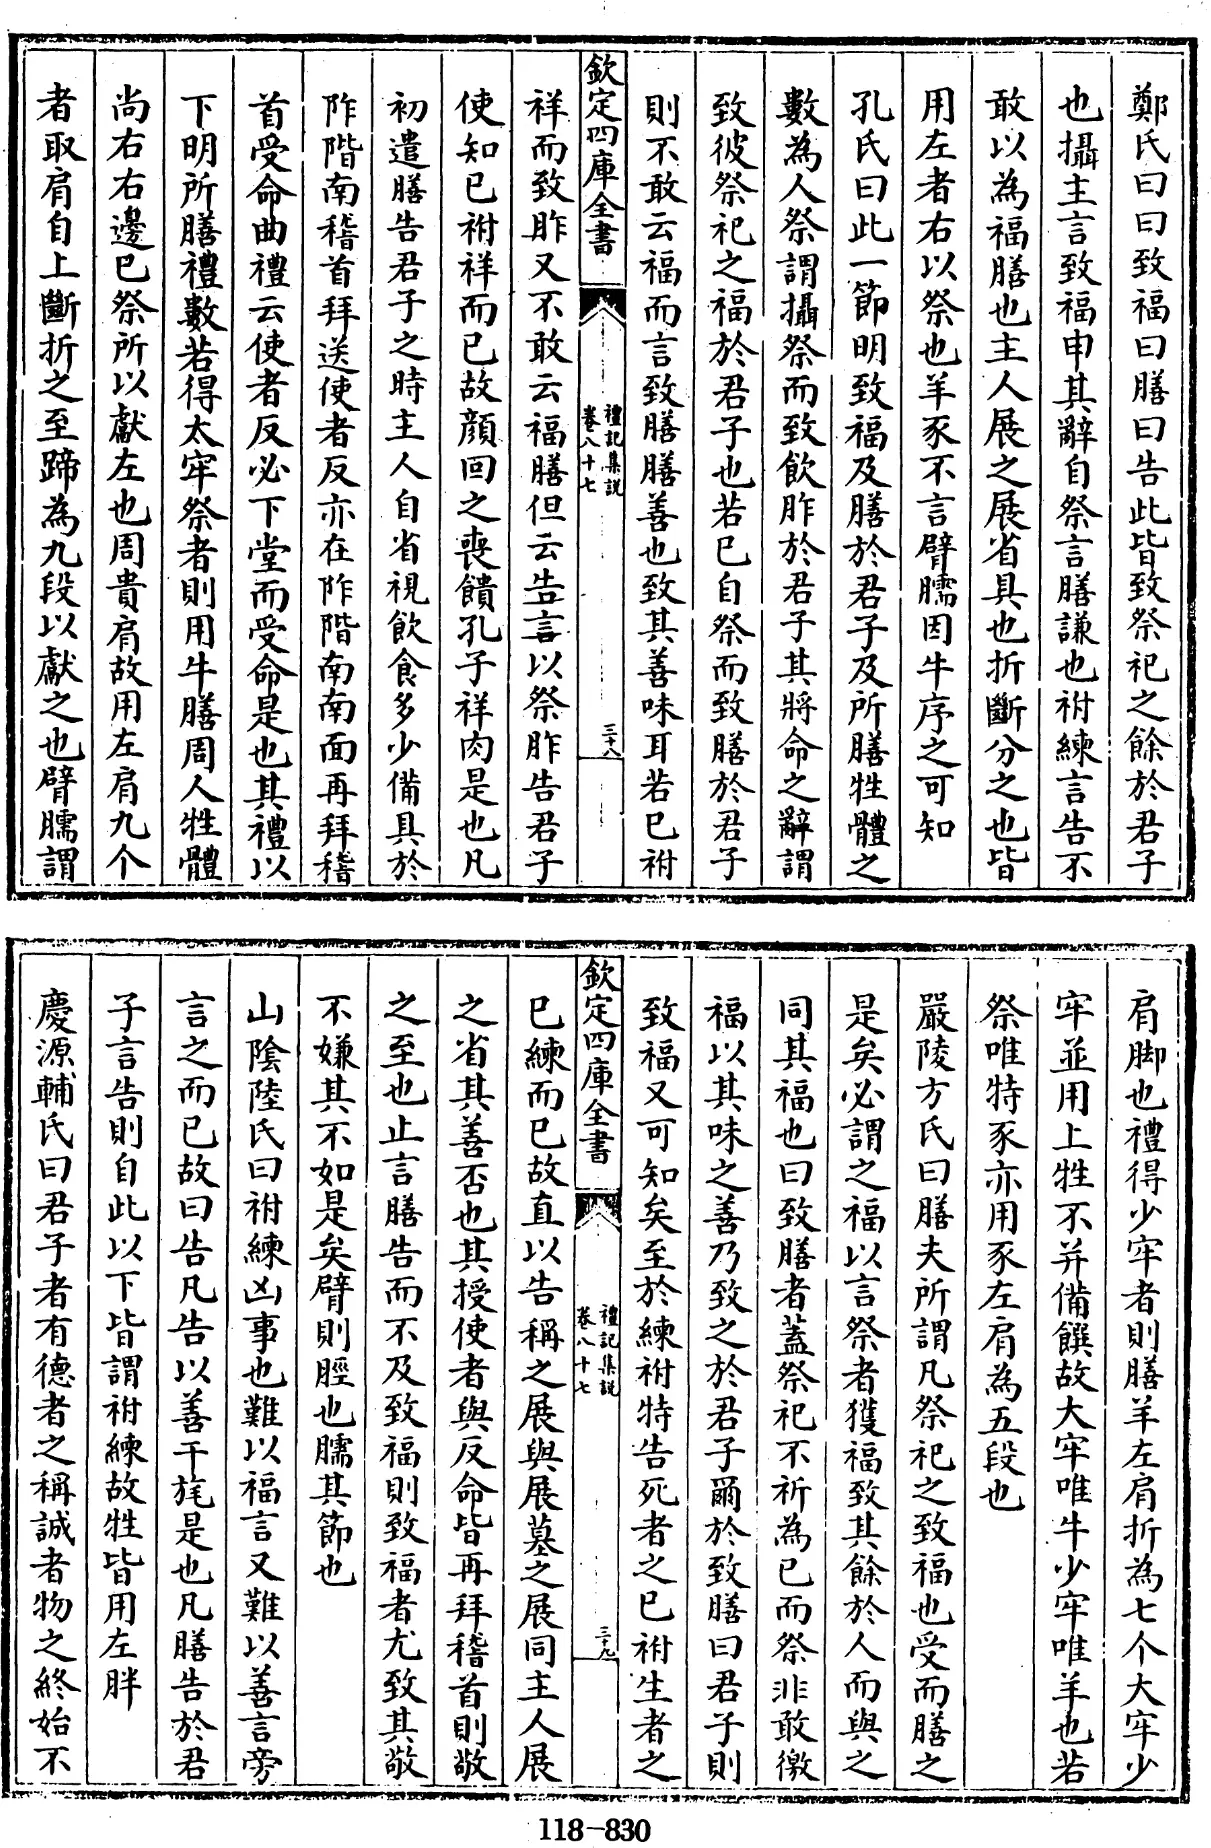 鄭氏曰曰致福曰膳曰告此皆致祭祀之餘於君子
也攝主言致福申其辭自祭言膳謙也祔練言告不
敢以為福膳也主人展之展省具也折斷分之也皆
用左者右以祭也羊豕不言臂臑因牛序之可知
孔氏曰此一節明致福及膳於君子及所膳牲體之
數為人祭謂攝祭而致飲胙於君子其將命之辭謂
致彼祭祀之福於君子也若已自祭而致膳於君子
則不敢云福而言致膳膳善也致其善味耳若已祔
欽定四庫全書
禮記集說
卷八十七
三十八
祥而致胙又不敢云福膳但云告言以祭胙告君子
使知已祔祥而已故顔回之喪饋孔子祥肉是也凡
初遣膳告君子之時主人自省視飲食多少備具於
阼階南稽首拜送使者反亦在阼階南南面再拜稽
首受命曲禮云使者反必下堂而受命是也其禮以
下明所膳禮數若得太牢祭者則用牛膳周人牲體
尚右右邊已祭所以獻左也周貴肩故用左肩九个
者取肩自上斷折之至蹄為九段以獻之也臂臑謂
肩脚也禮得少牢者則膳羊左肩折為七个大牢少
牢並用上牲不并備饌故大牢唯牛少牢唯羊也若
祭唯特豕亦用豕左肩為五段也
嚴陵方氏曰膳夫所謂凡祭祀之致福也受而膳之
是矣必謂之福以言祭者獲福致其餘於人而與之
同其福也曰致膳者蓋祭祀不祈為已而祭非敢徼
福以其味之善乃致之於君子爾於致膳曰君子則
致福又可知矣至於練祔特告死者之已祔生者之
欽定四庫全書
禮記集說
卷八十七
三十九
已練而已故直以告稱之展與展墓之展同主人展
之省其善否也其授使者與反命皆再拜稽首則敬
之至也止言膳告而不及致福則致福者尤致其敬
不嫌其不如是矣臂則脛也臑其節也
山陰陸氏曰祔練凶事也難以福言又難以善言旁
言之而已故曰告凡告以善干旄是也凡膳告於君
子言告則自此以下皆謂祔練故牲皆用左胖
慶源輔氏曰君子者有德者之稱誠者物之終始不
118-830